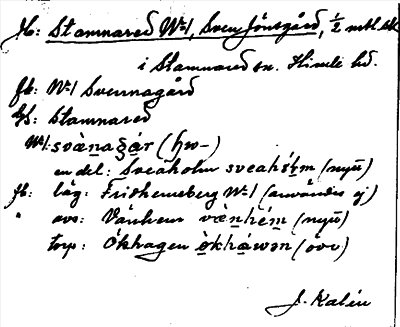 Jb: Stamnared Nº1, Sven Jönsgård, ½ mtl sk
i Stamnared sn. Himle hd.
fb: Nº1 Svennagård
Hs: Stamnared
Nº1: svæ̀nagár (hw-
en del: Sveaholm sveahɔ́lm (nyü)
fb: läg: Fridhemsberg Nº1 (användes ej)
" avs: Vänhem væ̀nhém (nyü)
torp: Ökhagen ö̀khàwən (öv)
J. Kalén